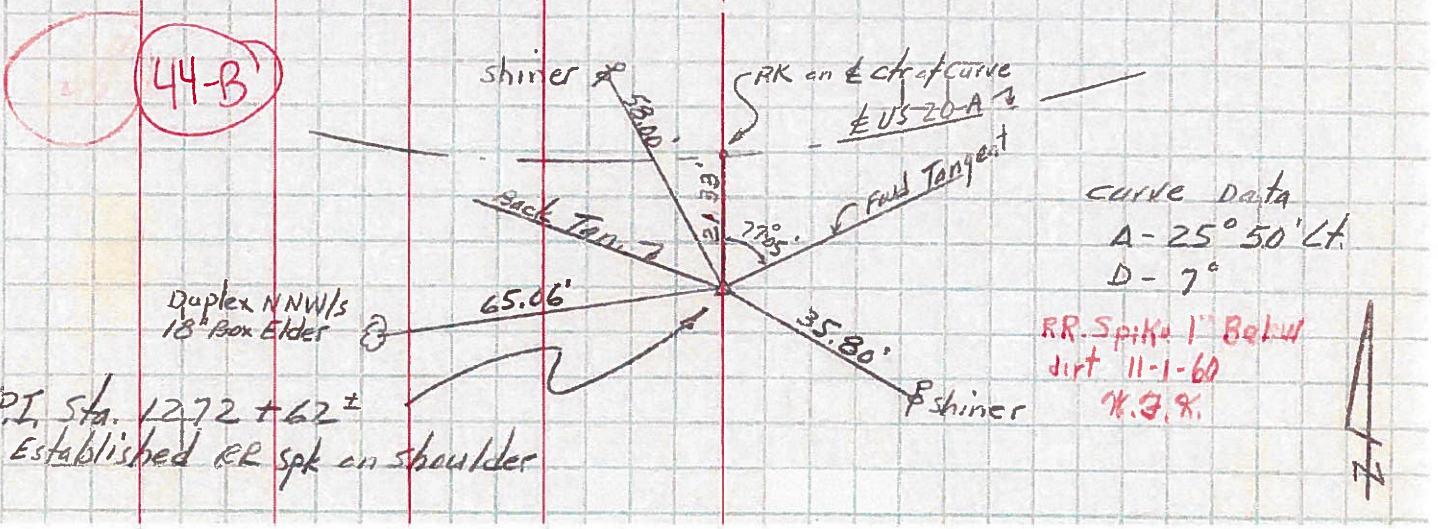 44-B
shiner
58.00'
RK on ℄ ctr of curve
℄ US-20-A
21.33'
77° 05'
Fwd Tangent
Back Tan.
Curve Data
Δ - 25° 50' Lt.
D - 7°
Duplex NNW/s
18" Box Elder
65.06'
35.80'
shiner
RR. Spike 1" Below
dirt 11-1-60
P.I. Sta. 1272 + 62 ±
Established RR spk on shoulder
N